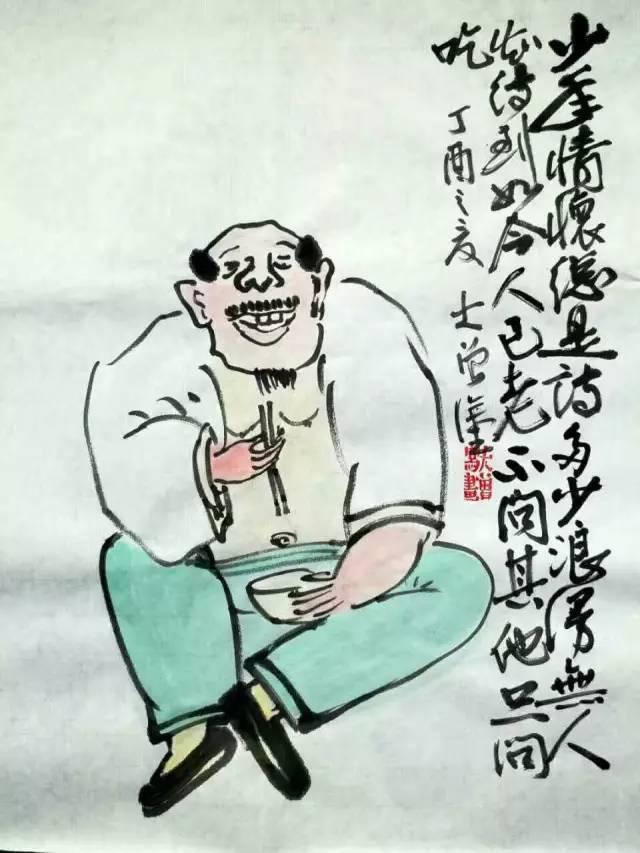 少年情懷總是詩多少浪漫無人
知待到如今人已老不问其他只问
吃
丁酉之夏 士曾